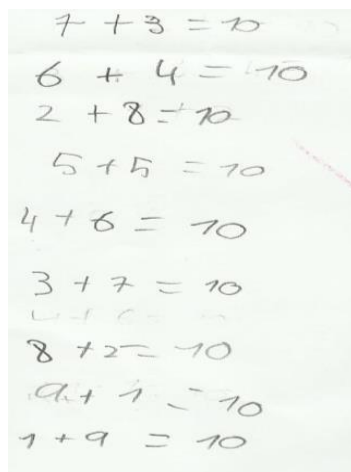 7 + 3 = 10
6 + 4 = 10
2 + 8 = 10
5 + 5 = 10
4 + 6 = 10
3 + 7 = 10
8 + 2 = 10
9 + 1 = 10
1 + 9 = 10